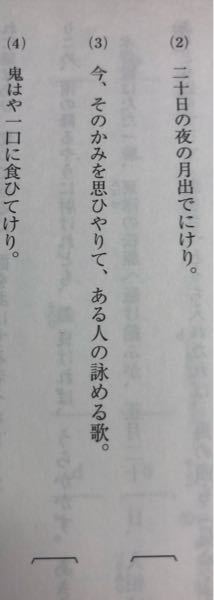 (2) 二十日の夜の月出でにけり。
(3) 今、そのかみを思ひやりて、ある人の詠める歌。
(4) 鬼はや一口に食ひてけり。